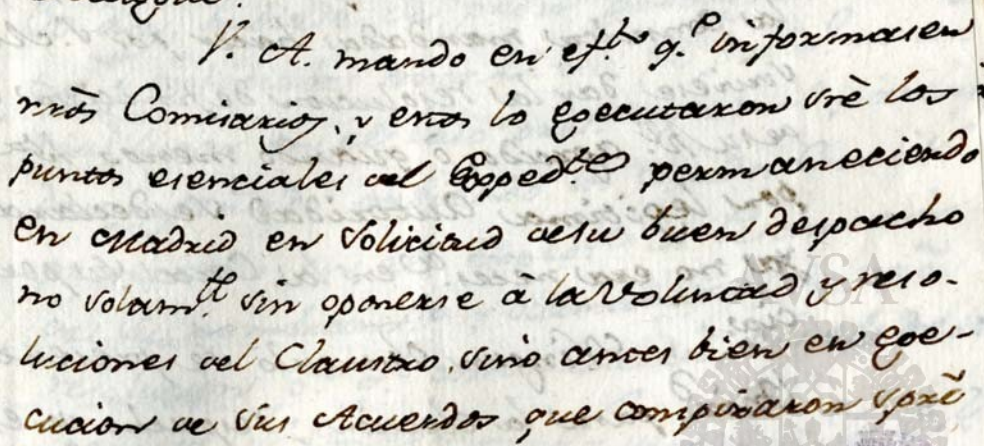 V. A. mando en ef.to q.e informasen
nrõs Comisarios, y estos lo egecutaron sre los
puntos esenciales del Exped.te permaneciendo
en Madrid en solicitud de su buen despacho
no solam.te sin oponerse à la Voluntad y reso-
luciones del Claustro, sino antes bien en ege-
cucion de sus Acuerdos, que conspiraron sprẽ
AVSA